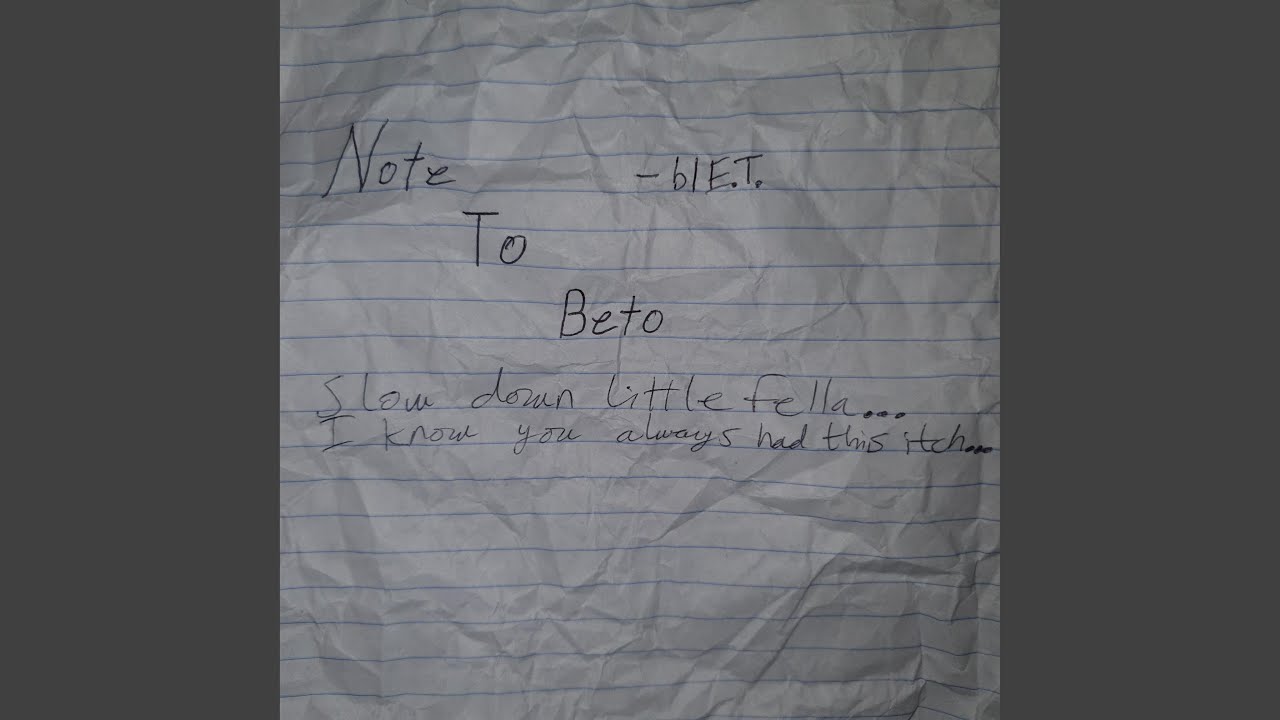 Note
- blE.T.
To
Beto
Slow down little fella...
I know you always had this itch...